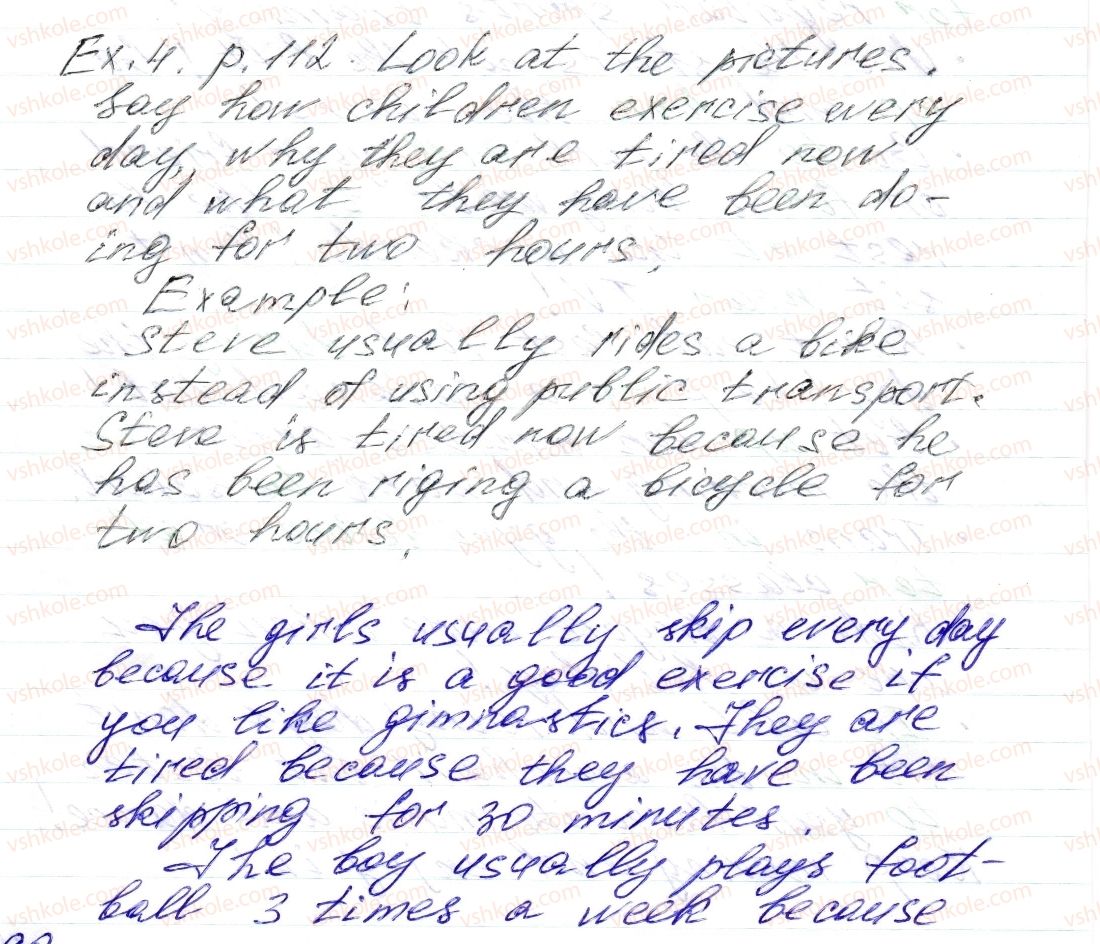 Ex.4. p.112. Look at the pictures.
Say how children exercise every
day, why they are tired now
and what they have been do-
ing for two hours.
Example:
Steve usually rides a bike
instead of using public transport.
Steve is tired now because he
has been riging a bicycle for
two hours.
The girls usually skip every day
because it is a good exercise if
you like gimnastics. They are
tired because they have been
skipping for 30 minutes.
The boy usually plays foot-
ball 3 times a week because